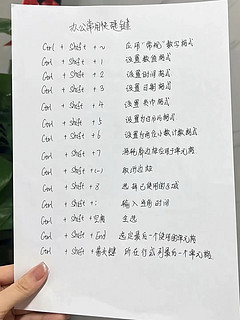 办公常用快捷键
Ctrl + Shift + ~ 应用"常规"数字格式
Ctrl + Shift + 1 设置数值格式
Ctrl + Shift + 2 设置时间格式
Ctrl + Shift + 3 设置日期格式
Ctrl + Shift + 4 设置货币格式
Ctrl + Shift + 5 设置为百分比格式
Ctrl + Shift + 6 设置为科学计数格式
Ctrl + Shift + 7 将轮廓边框应用于单元格
Ctrl + Shift + (-) 取消边框
Ctrl + Shift + 8 选择已使用的区域
Ctrl + Shift + : 输入当前时间
Ctrl + Shift + 空格 全选
Ctrl + Shift + End 选定最后一个使用的单元格
Ctrl + Shift + 箭头键 所在行或列最后一个单元格